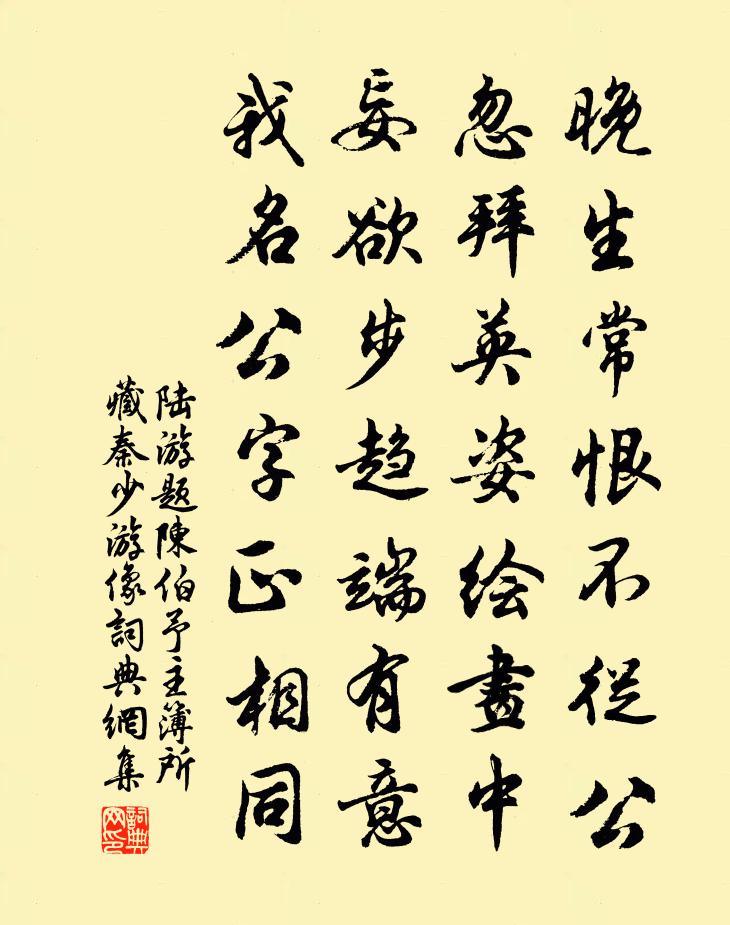 晚生常恨不从公
忽拜英姿绘畫中
妄欲步趋端有意
我名公字正相同
陆游题陳伯予主簿所
藏秦少游像詞典網集
詞典
网印